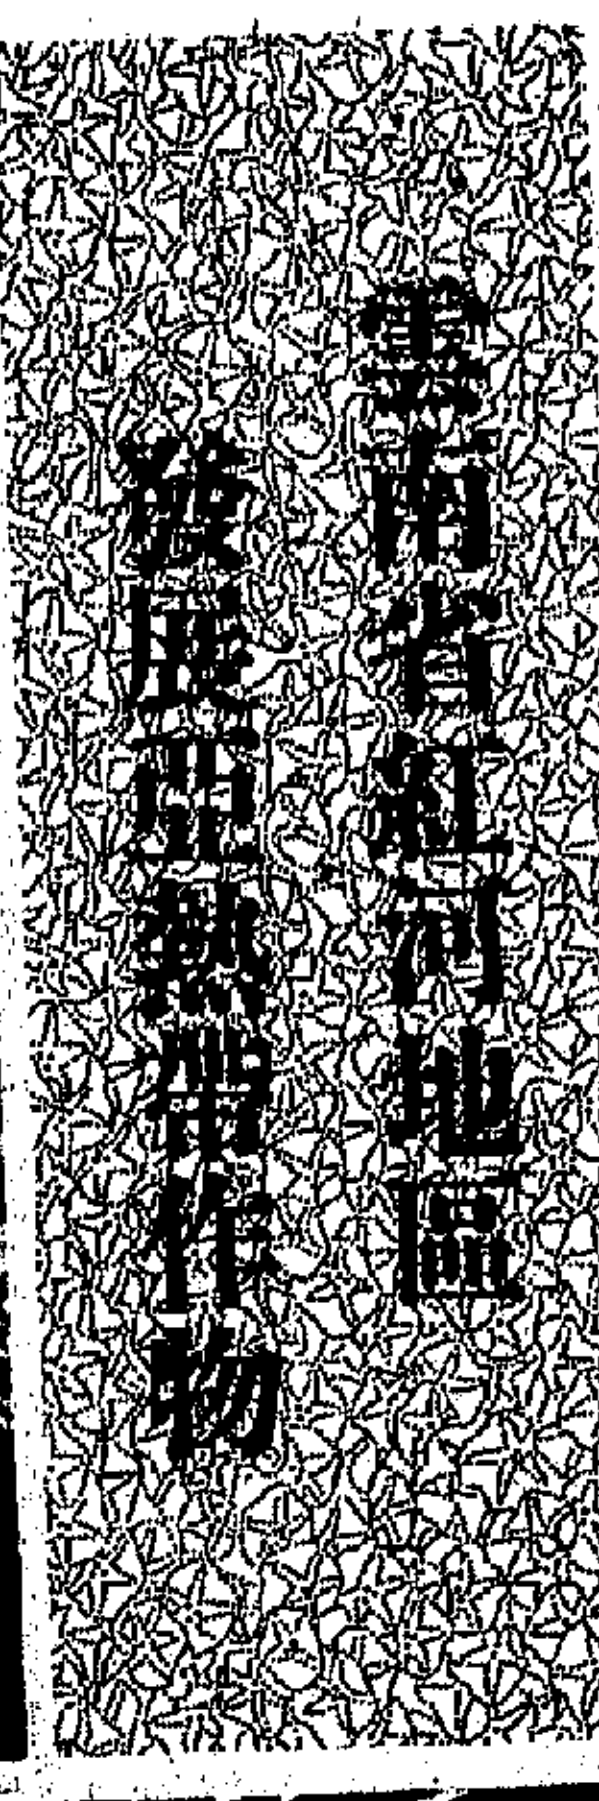 雲南省紅河地區
發展亞熱帶作物